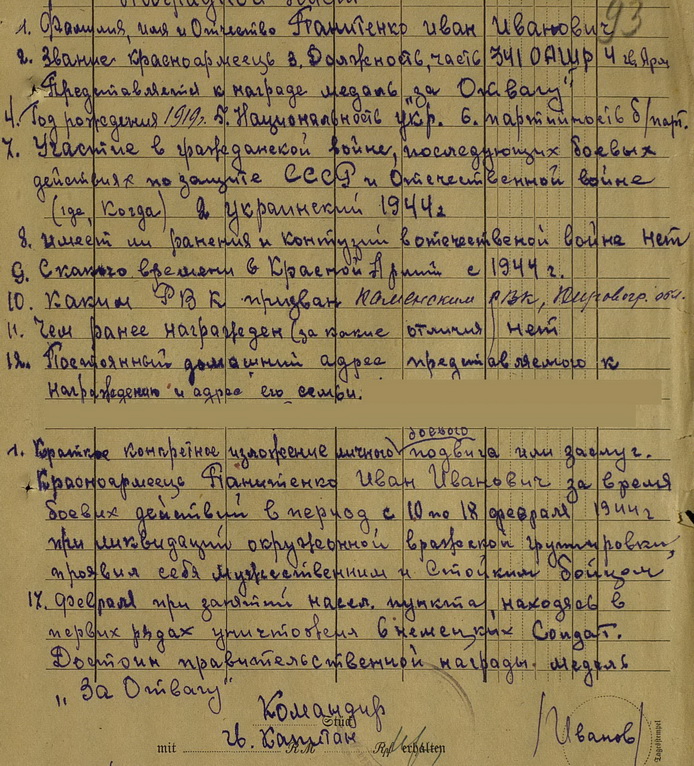 93
1. Фамилия, имя и Отчество Панитенко Иван Иванович
2. Звание красноармеець 3. Должность, часть 341 ОАШР 4 гв. Арм
Представляется к награде медаль „за Отвагу"
4. Год рождения 1919г. 5. Национальность укр. 6. партийность б/парт.
7. Участие в гражданской войне, последующих боевых
действиях по защите СССР и Отечественной войне
(где, Когда) 2 украинский 1944г
8. имеет ли ранения и контузий в отечественой войне нет
9. С какого времени в Красной Армии с 1944 г.
10. Каким РВК призван Каменским РВК, Кировогр. обл.
11. Чем ранее награжден (за какие отличия) нет
12. Постоянный домашний адрес представляемого к
награждению и адрес его семьи.
боевого
1. Краткое конкретное изложение личного подвига или заслуг.
Красноармеець Панитенко Иван Иванович за время
боевых действий в период с 10 по 18 февраля 1944г
при ликвидаций окружонной вражеской групировки
проявил себя мужественним и Стойким бойцом,
17. февраля при занятий насел. пункта, находясь в
первих рядах уничтожил 6 немецких Солдат.
Достоин правительственной награды медаль
„За Отвагу"
Командир
Гв. Капитан /Иванов/
Stück
mit RM Rpf erhalten
Tagesstempel